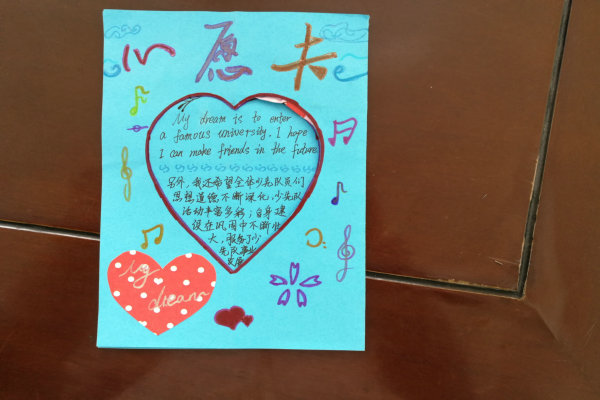 心愿卡
My dream is to enter
a famous university. I hope
I can make friends in the future
另外,我还希望全体少先队员们
思想道德不断深化,少先队
活动丰富多彩;自身建
设在巩固中不断壮
大,服务于少
先队事业
发展
My
dream